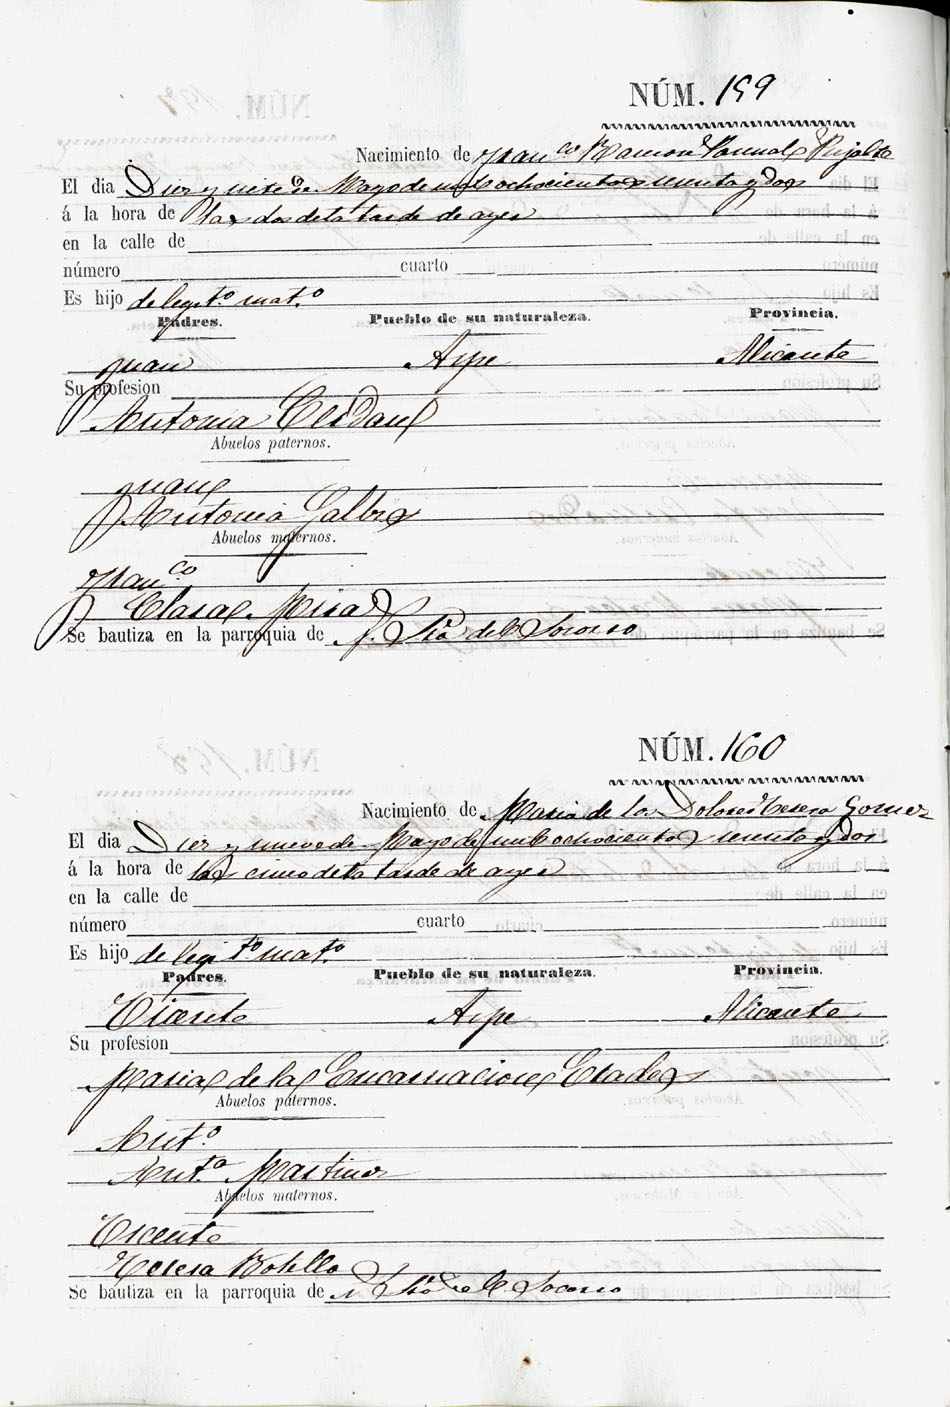 NÚM. 159
Nacimiento de Fran.co Ramon Pascual Rijalte
El dia Diez y nueve de Mayo de mil ochocientos sesenta y dos
á la hora de las dos de la tarde de ayer
en la calle de
número cuarto
Es hijo de legit.o mat.o
Padres. Pueblo de su naturaleza. Provincia.
Juan Aspe Alicante
Su profesion
Antonia Cerdan
Abuelos paternos.
Juan
Antonia Galbis
Abuelos maternos.
Fran.co
Clara Mira
Se bautiza en la parroquia de N. Sra del Socorro
NÚM. 160
Nacimiento de Maria de los Dolores Teresa Gomez
El dia Diez y nueve de Mayo de mil ochocientos sesenta y dos
á la hora de las cinco de la tarde de ayer
en la calle de
número cuarto
Es hijo de legit.o mat.o
Padres. Pueblo de su naturaleza. Provincia.
Vicente Aspe Alicante
Su profesion
Maria de la Encarnacion
Abuelos paternos.
Ant.o
Ant.a Martinez
Abuelos maternos.
Vicente
Teresa Botella
Se bautiza en la parroquia de N. Sra del Socorro